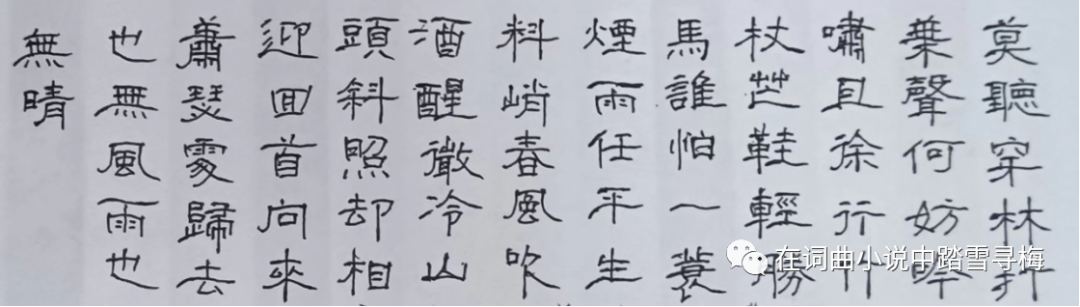 莫聽穿林打
葉聲何妨吟
嘯且徐行竹
杖芒鞋輕勝
馬誰怕一蓑
煙雨任平生
料峭春風吹
酒醒微冷山
頭斜照却相
迎回首向來
蕭瑟處歸去
也無風雨也
無晴
在词曲小说中踏雪寻梅